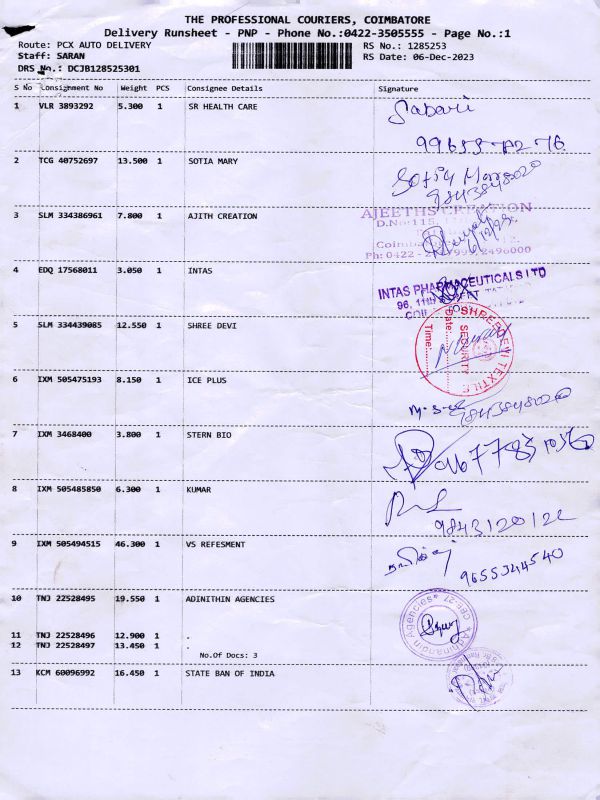 THE PROFESSIONAL COURIERS, COIMBATORE
Delivery Runsheet - PNP - Phone No.:0422-3505555 - Page No.:1
Route: PCX AUTO DELIVERY RS No.: 1285253
Staff: SARAN RS Date: 06-Dec-2023
DRS No.: DCJB128525301
S No Consignment No Weight PCS Consignee Details Signature
1 VLR 3893292 5.300 1 SR HEALTH CARE Sabari
2 TCG 40752697 13.500 1 SOTIA MARY
9843848020
3 SLM 334386961 7.800 1 AJITH CREATION AJEETHS CREATION
D.No:115,
Coimba
Ph: 0422 - 2496000
4 EDQ 17568011 3.050 1 INTAS INTAS PHARMACEUTICALS LTD
96, 11th
5 SLM 334439085 12.550 1 SHREE DEVI SHREE DEVI TEXTILE
SECURITY
Date:
Time:
6 IXM 505475193 8.150 1 ICE PLUS
9843848020
7 IXM 3468400 3.800 1 STERN BIO
8 IXM 505485850 6.300 1 KUMAR
9843120122
9 IXM 505494515 46.300 1 VS REFESMENT
9655344540
10 TNJ 22528495 19.550 1 ADINITHIN AGENCIES
11 TNJ 22528496 12.900 1 .
12 TNJ 22528497 13.450 1 .
No.Of Docs: 3
13 KCM 60096992 16.450 1 STATE BAN OF INDIA